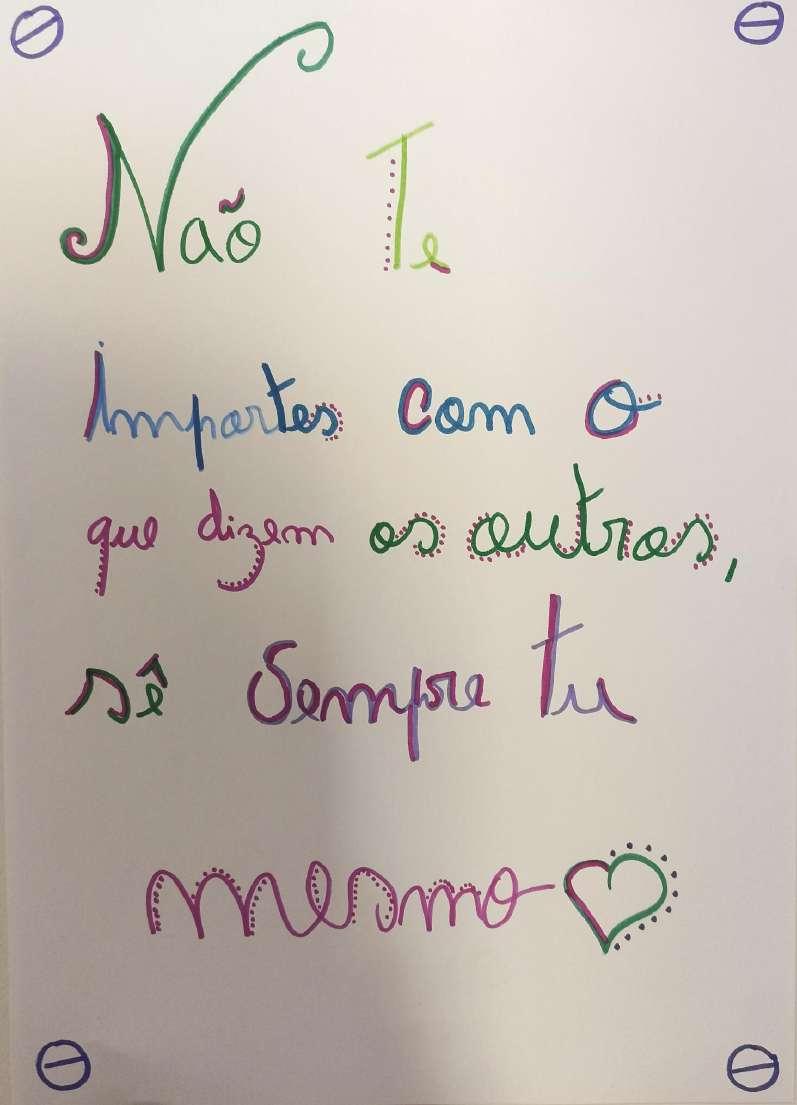 Não Te
importes com o
que dizem os outros,
sê sempre tu
mesmo